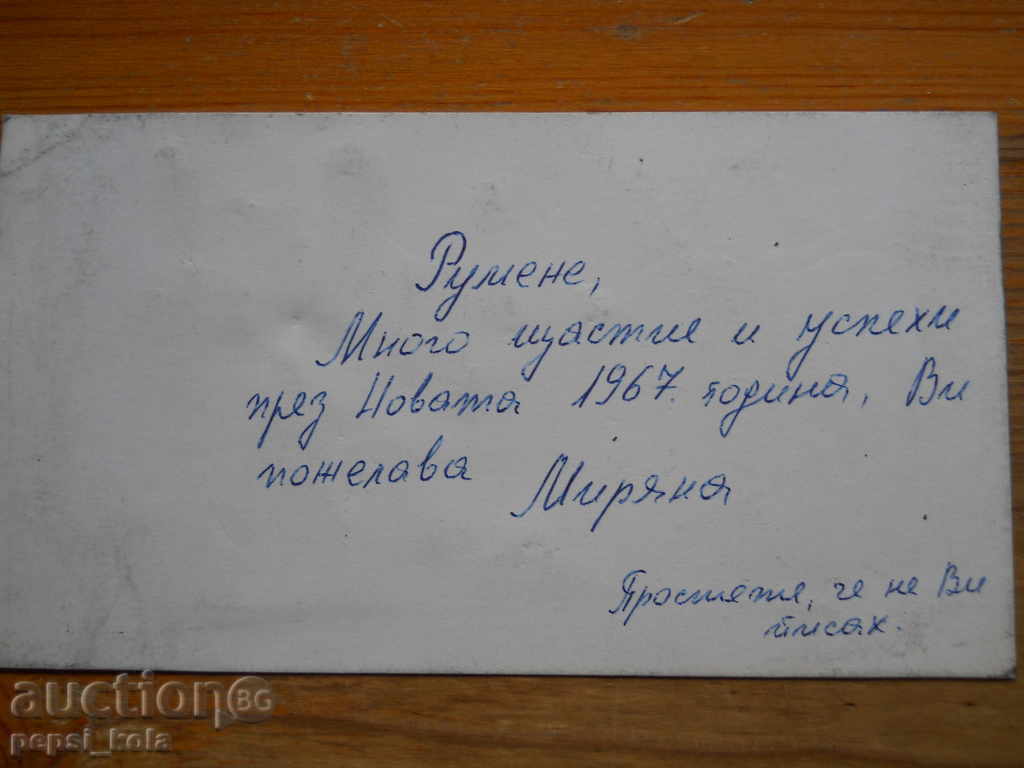 Румене,
Много щастие и успехи
през Новата 1967. година, Ви
пожелава
Миряна
Простете, че не Ви
писах.
auction BG
pepsi_kola